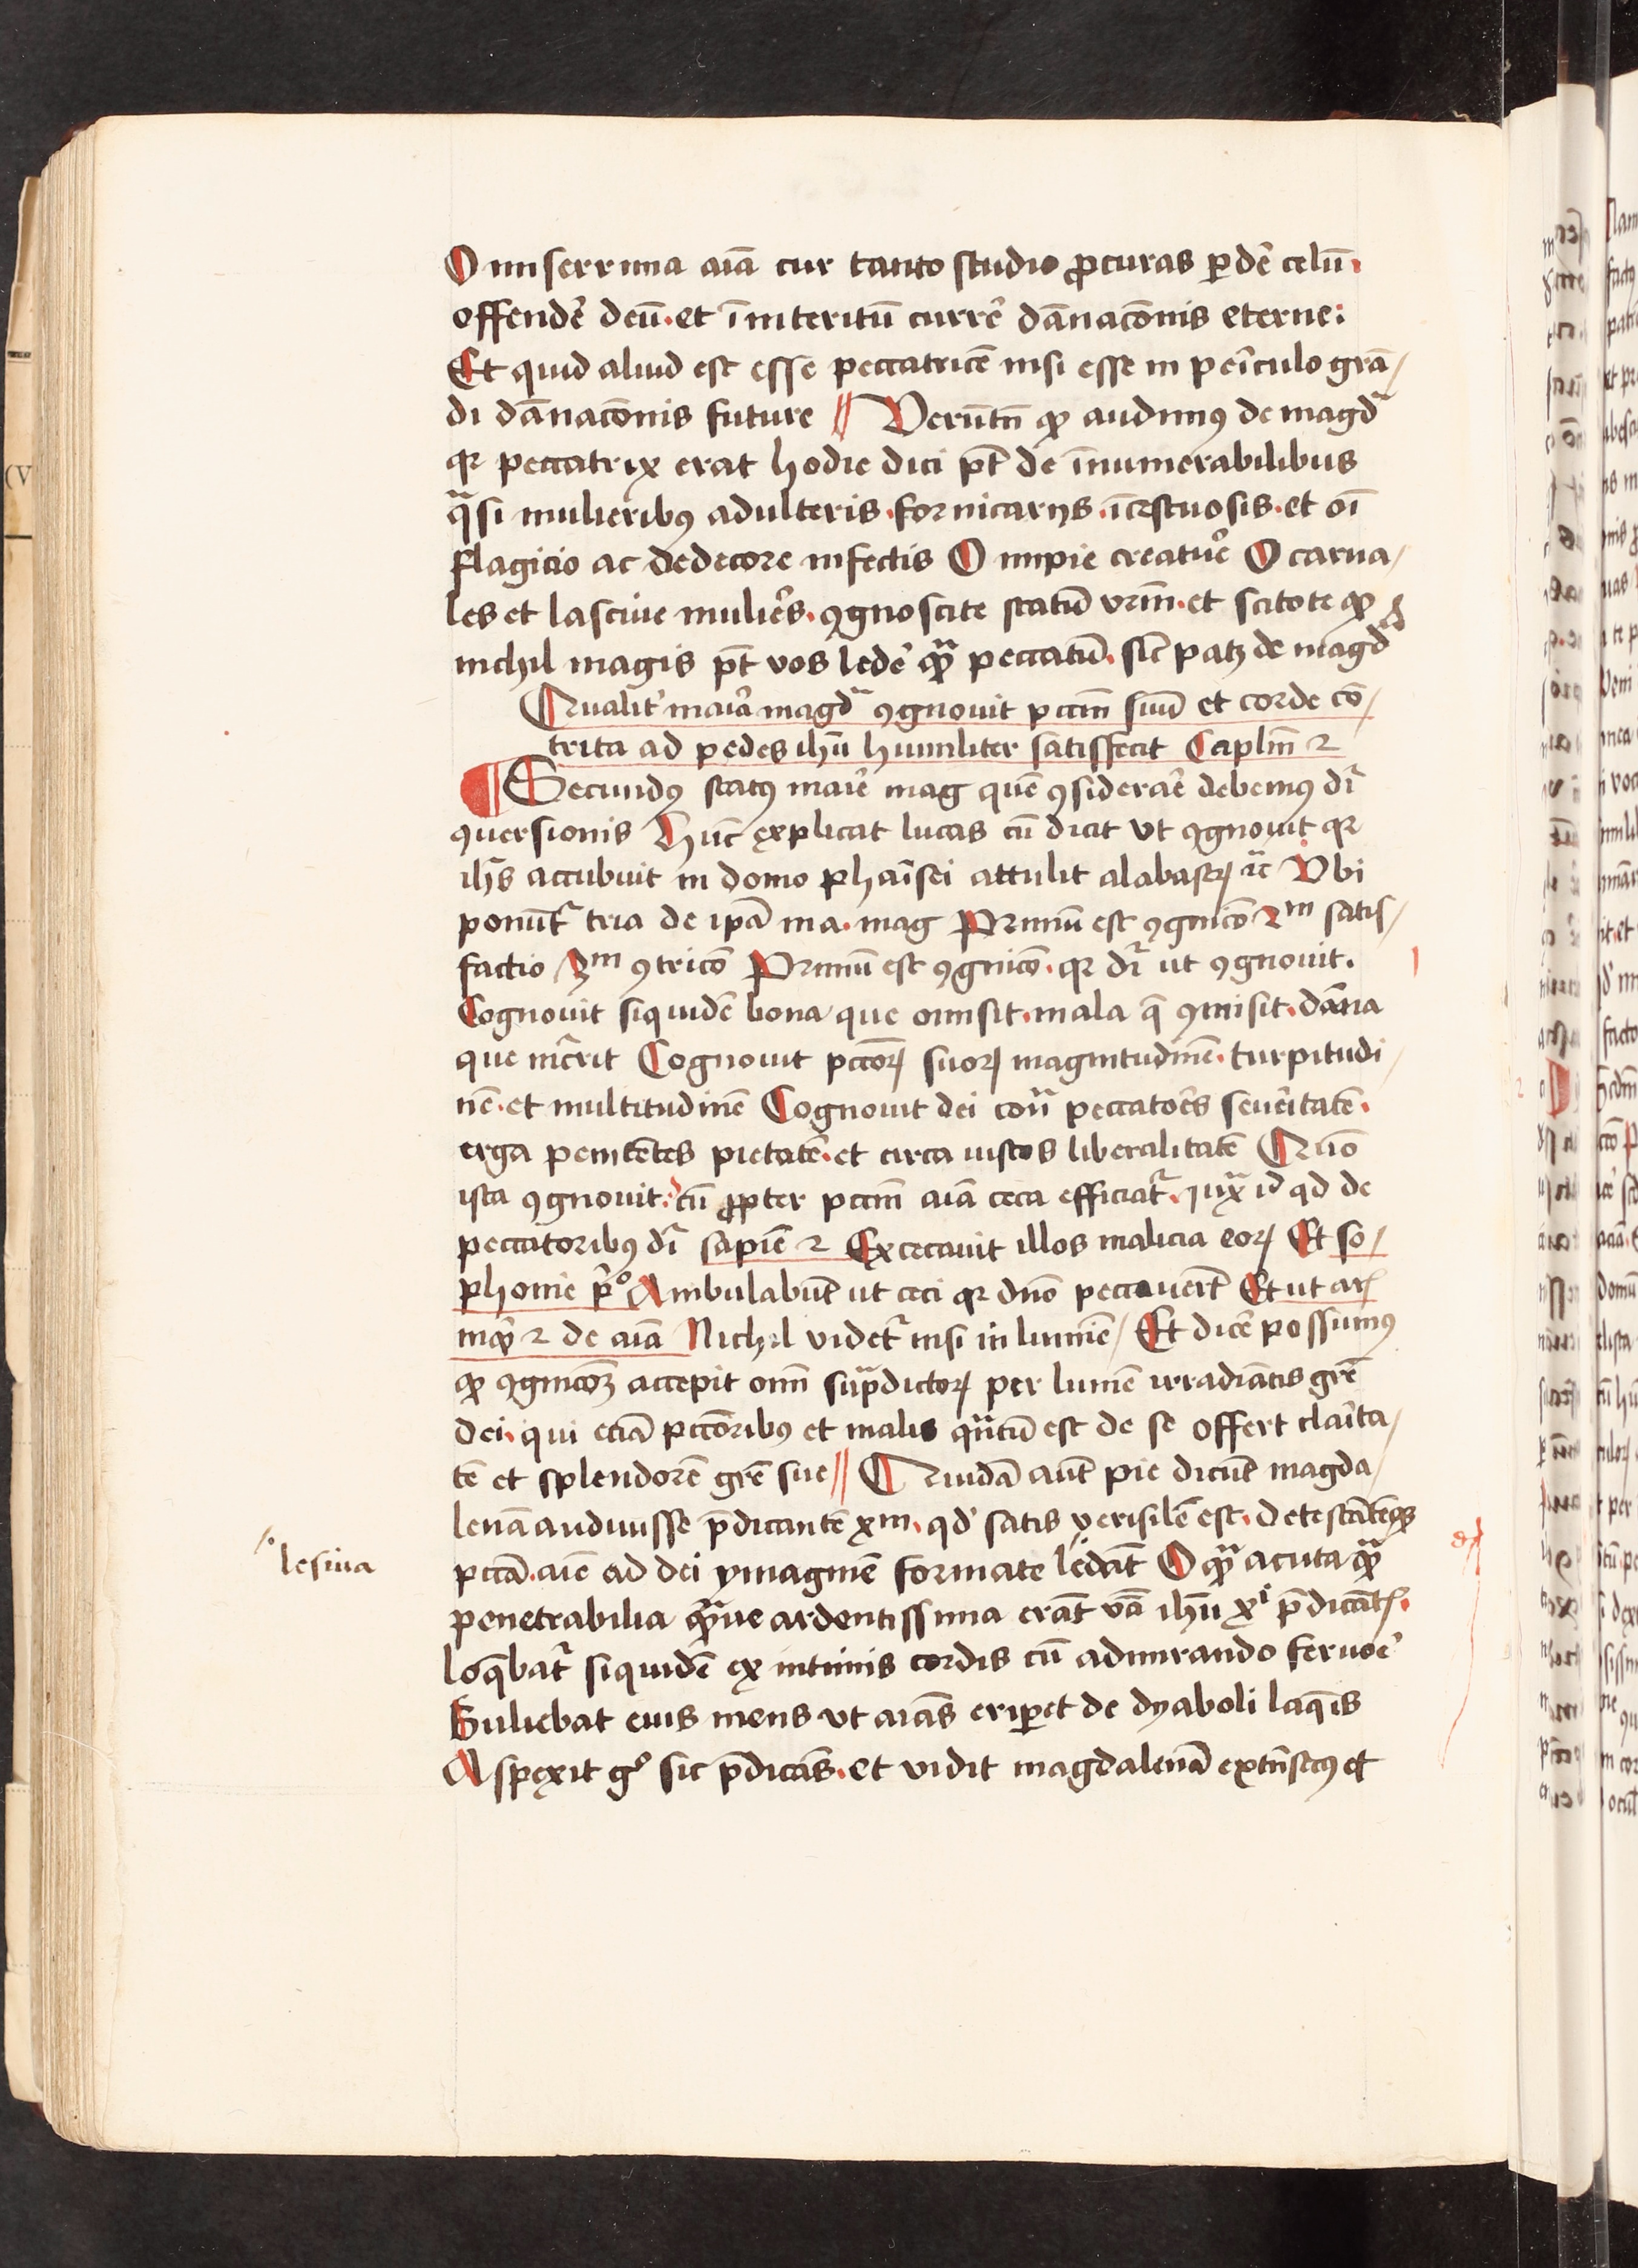 O miserrima aīa cur tanto studio ꝓcuras ꝑdēˀ celū.
offendēˀ deū. et ī interitū currēˀ dānacōnis eterne:
Et quid aliud est esse peccatricē nisi esse in peīculo grā/
di dānacōnis future // Verūtn̄ ꝙ audimꝰ de magdᷓ
qꝛ peccatrix erat hodie dici pt̄ de īnumerabilibus
qᷓsi mulieribꝰ adulteris. fornicarijs. īcestuosis. et oī
flagicio ac dedecore infectis O impie creatuēˀ O carna/
les et lasciue muliēˀs. ꝯgnoscite statū vrm̄. et scitote ꝙ
nichil magis pt̄ vos ledēˀ qᷓ peccatū. sic̄ patꝫ de magdᷓ
Qualitˀ maīa magdᷓ ꝯgnouit pccm̄ suū et corde cō/
trita ad pedes ihū humiliter satisfecit Caplm̄ 2
¶ Secundꝰ statꝰ maīe mag quē ꝯsideraēˀ debemꝰ dr̄
ꝯuersionis Hūc explicat lucas cū dicit vt ꝯgnouit qꝛ
ihs̄ accubuit in domo phaīsei attulit alabastꝝ ⁊c̄ Vbi
ponūtᷣ tria de ipā ma. mag Primū est ꝯgnicō 2ᵐ satis/
factio / 3ᵐ ꝯtricō Primū est ꝯgnicō. qꝛ dr̄ ut ꝯgnouit.
Cognouit siquidē bona que omisit. mala q̄ ꝯmisit. dāna
que incᷣrit Cognouit pccōꝝ suoꝝ magnitudinē. turpitudi/
nē. et multitudinē Cognouit dei conᷓ peccatoēˀs seueītatē.
erga penitētes pietatē. et circa iustos liberalitatē Quō
ista ꝯgnouit. cū ꝓpter pccm̄ aīa ceca efficiatᷣ. iuxᷓ id qd de
peccatoribꝰ dr̄ sapiē 2 Excecauit illos malicia eoꝝ Et so/
phonie pᷣº Ambulabūt ut ceci qꝛ dn̄o peccauerᷠt Et ut arꝭ
inqᷣ 2 de aīa Nichil videtᷣ nisi in lumīe / Et dicēˀ possumꝰ
ꝙ ꝯgnicōꝫ accepit om̄ suᷓpdictoꝝ per lumē irradiātis grē
dei. qui eciā pccōribꝰ et malis qᷓtū est de se offert claīta/
tē et splendorē grē sue // Quidā aūt pie dicūt magda/
lenā audiuisse p̄dicantē xm̄. qd satis verisilē est. detestātēqꝫ
pccā. aīe ad dei ymaginē formate ledāt O qᷓ acuta qᷓ
penetrabilia qᷓue ardentissima erāt vᷓa ihū xⁱ p̄dicātꝭ.
loqbatᷣ siquidē ex intimis cordis cū admirando feruoēˀ
Buliebat eius mens vt aīas eriꝑet de dyaboli laqīs
Aspexit gº sic p̄dicās. et vidit magdalenā extīsecꝰ et
lesiua